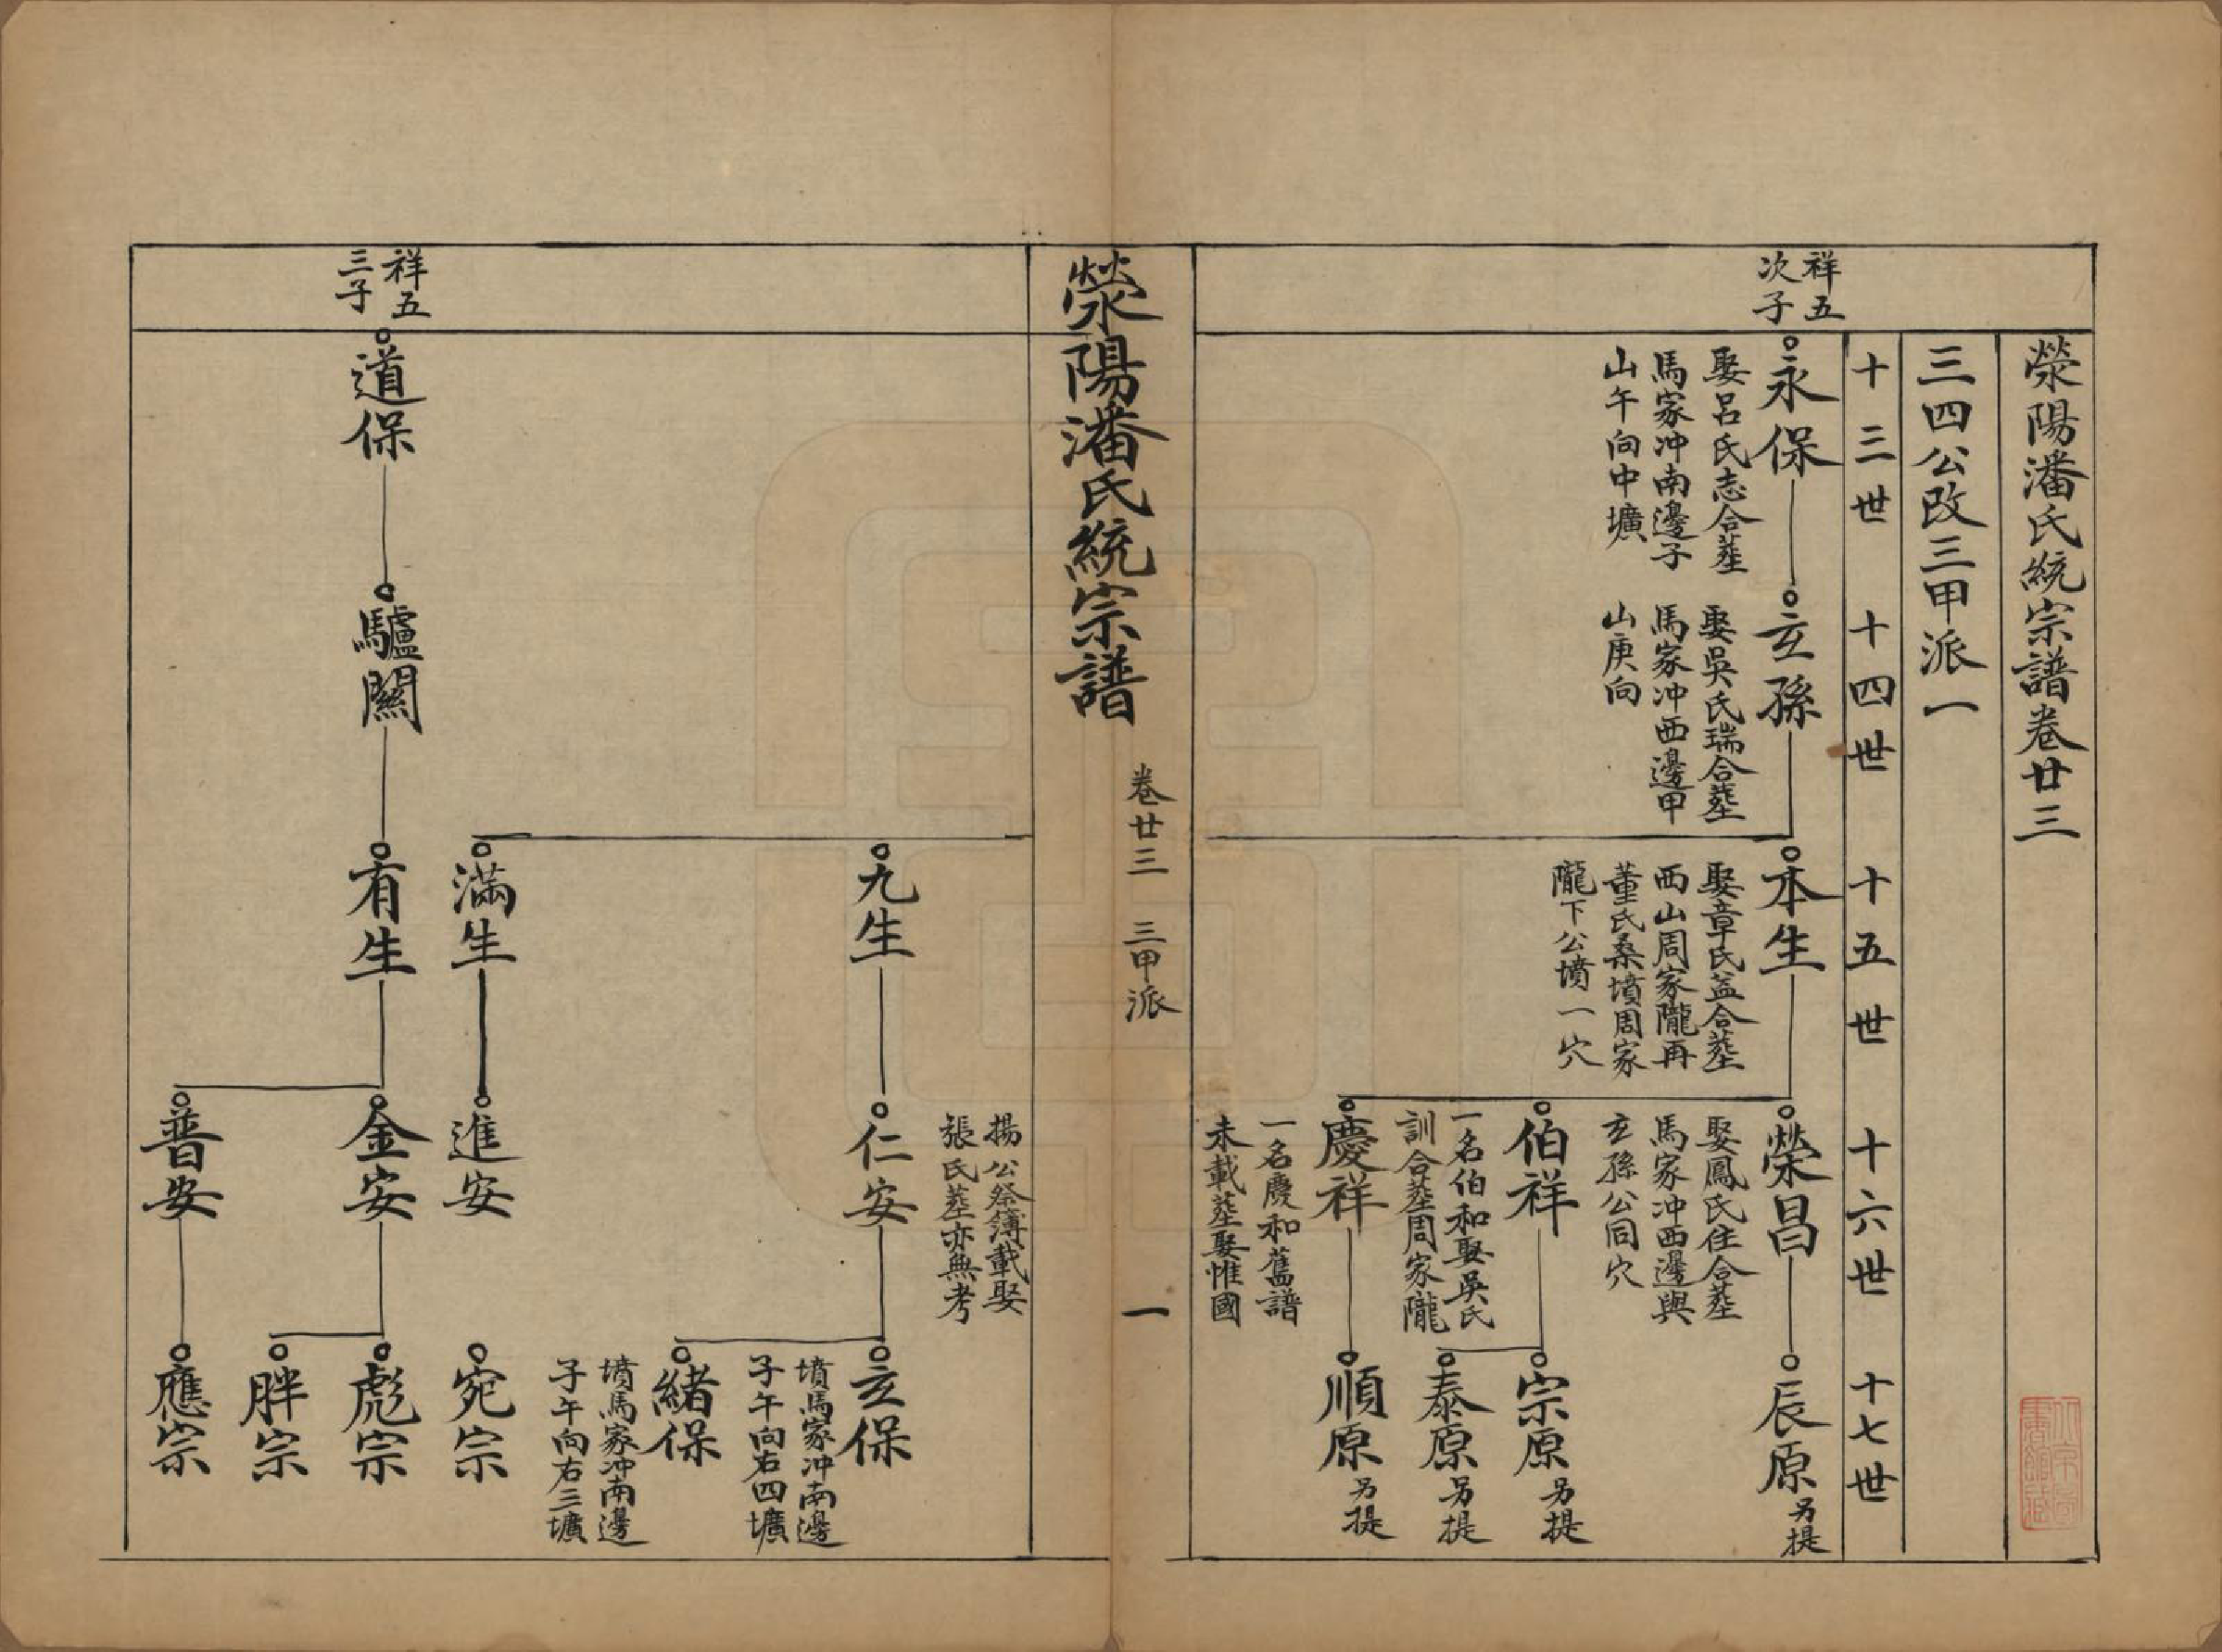 滎陽潘氏統宗譜卷廿三
三四公改三甲派一
十三世
十四世
十五世
十六世
十七世
祥五
次子
永保
娶呂氏志合塟
馬家冲南邊子
山午向中壙
玄孫
娶吳氏瑞合塟
馬家冲西邊甲
山庚向
本生
娶章氏益合塟
西山周家隴再
董氏桑墳周家
隴下公墳一穴
榮昌
娶鳳氏住合塟
馬家冲西邊與
玄孫公同穴
辰原另提
伯祥
一名伯和娶吳氏
訓合塟周家隴
宗原另提
泰原另提
慶祥
一名慶和舊譜
未載塟娶惟國
順原另提
滎陽潘氏統宗譜
卷廿三
三甲派
一
揚公祭簿載娶
張氏塟亦無考
九生
仁安
玄保
墳馬家冲南邊
子午向右四壙
緒保
墳馬家冲南邊
子午向右三壙
滿生
進安
宛宗
祥五
三子
道保
驢關
有生
金安
彪宗
胖宗
普安
應宗